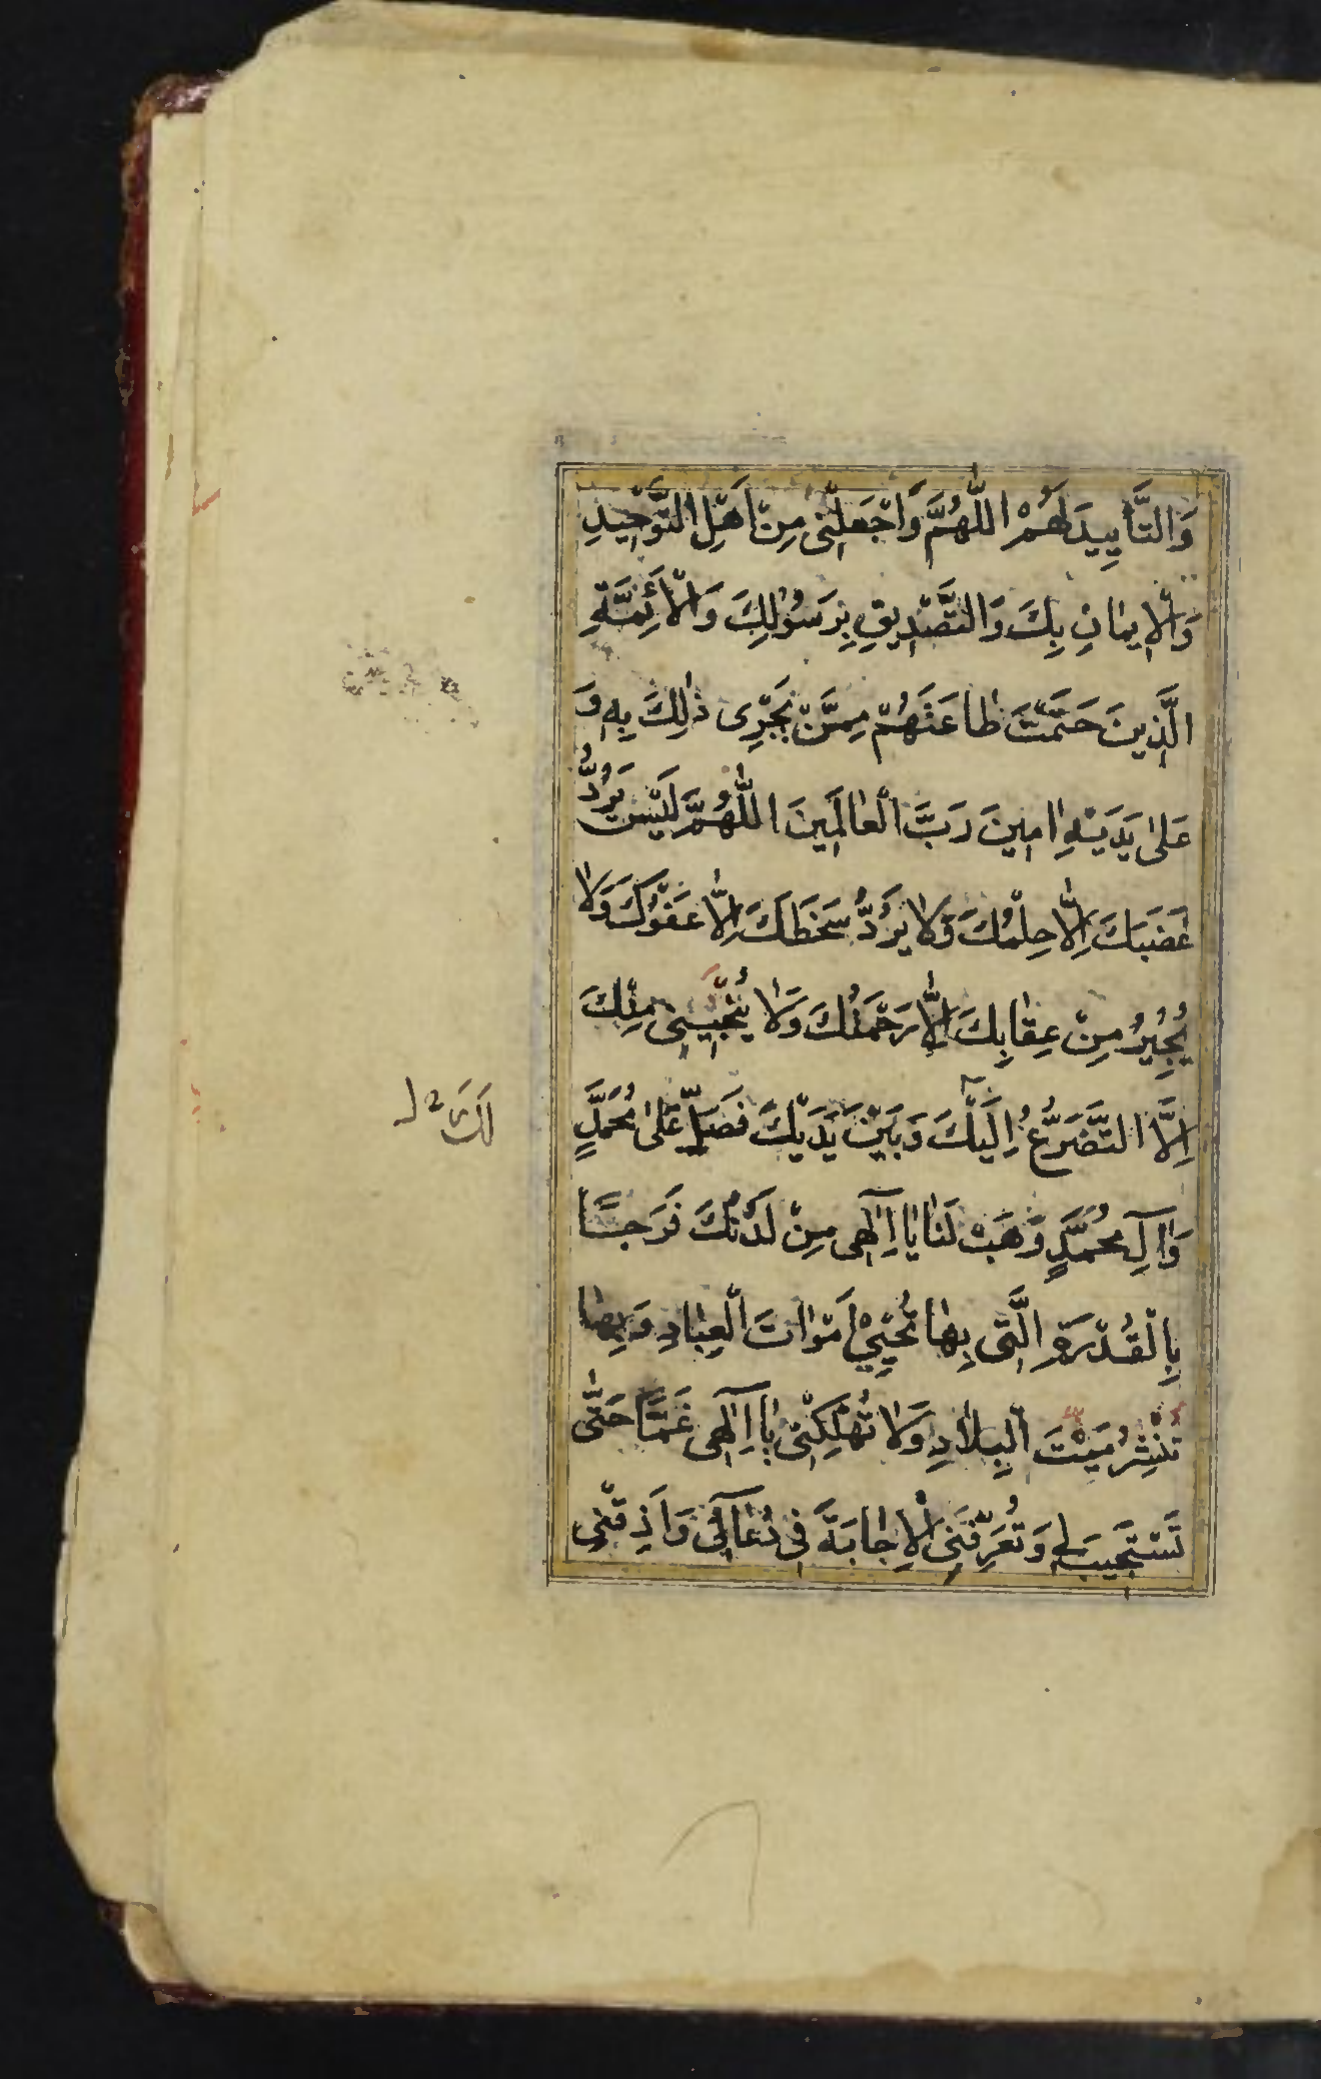 وَالتَّأْيِيدَ لَهُمْ اَللّٰهُمَّ وَاجْعَلْنى مِنْ اَهْلِ التَّوْحيدِ
وَالْاِيمٰانِ بِكَ وَالتَّصْدِيقِ بِرَسُوْلِكَ وَالْاَئِمَّةِ
الَّذِينَ حَتَمْتَ طٰاعَتَهُمْ مِمَّنْ يَجْرِى ذٰلِكَ بِهِ وَ
عَلىٰ يَدَيْهِ اٰمِينَ رَبَّ الْعٰالَمِينَ اَللّٰهُمَّ لَيْسَ يَرُدُّ
غَضَبَكَ اِلّٰا حِلْمُكَ وَلٰا يَرُدُّ سَخَطَكَ اِلّٰا عَفْوُكَ وَلٰا
يُجِيْرُ مِنْ عِقٰابِكَ اِلّٰا رَحْمَتُكَ وَلٰا يُنْجِيْنِى مِنْكَ
اِلَّا التَّضَرُّعُ اِلَيْكَ وَبَيْنَ يَدَيْكَ فَصَلِّ عَلىٰ مُحَمَّدٍ
وَاٰلِ مُحَمَّدٍ وَهَبْ لَنٰا يٰا اِلٰهِى مِنْ لَدُنْكَ فَرَجًا
بِالْقُدْرَةِ الَّتِى بِهٰا تُحْيِيْ اَمْوٰاتَ الْعِبٰادِ وَبِهٰا
تَنْشُرُ مَيْتَ الْبِلٰادِ وَلٰا تُهْلِكْنِى يٰا اِلٰهِى غَمًّا حَتّٰى
تَسْتَجِيبَ لِي وَتُعَرِّفَنِى الْاِجٰابَةَ فِى دُعٰآئِى وَاَذِقْنِى